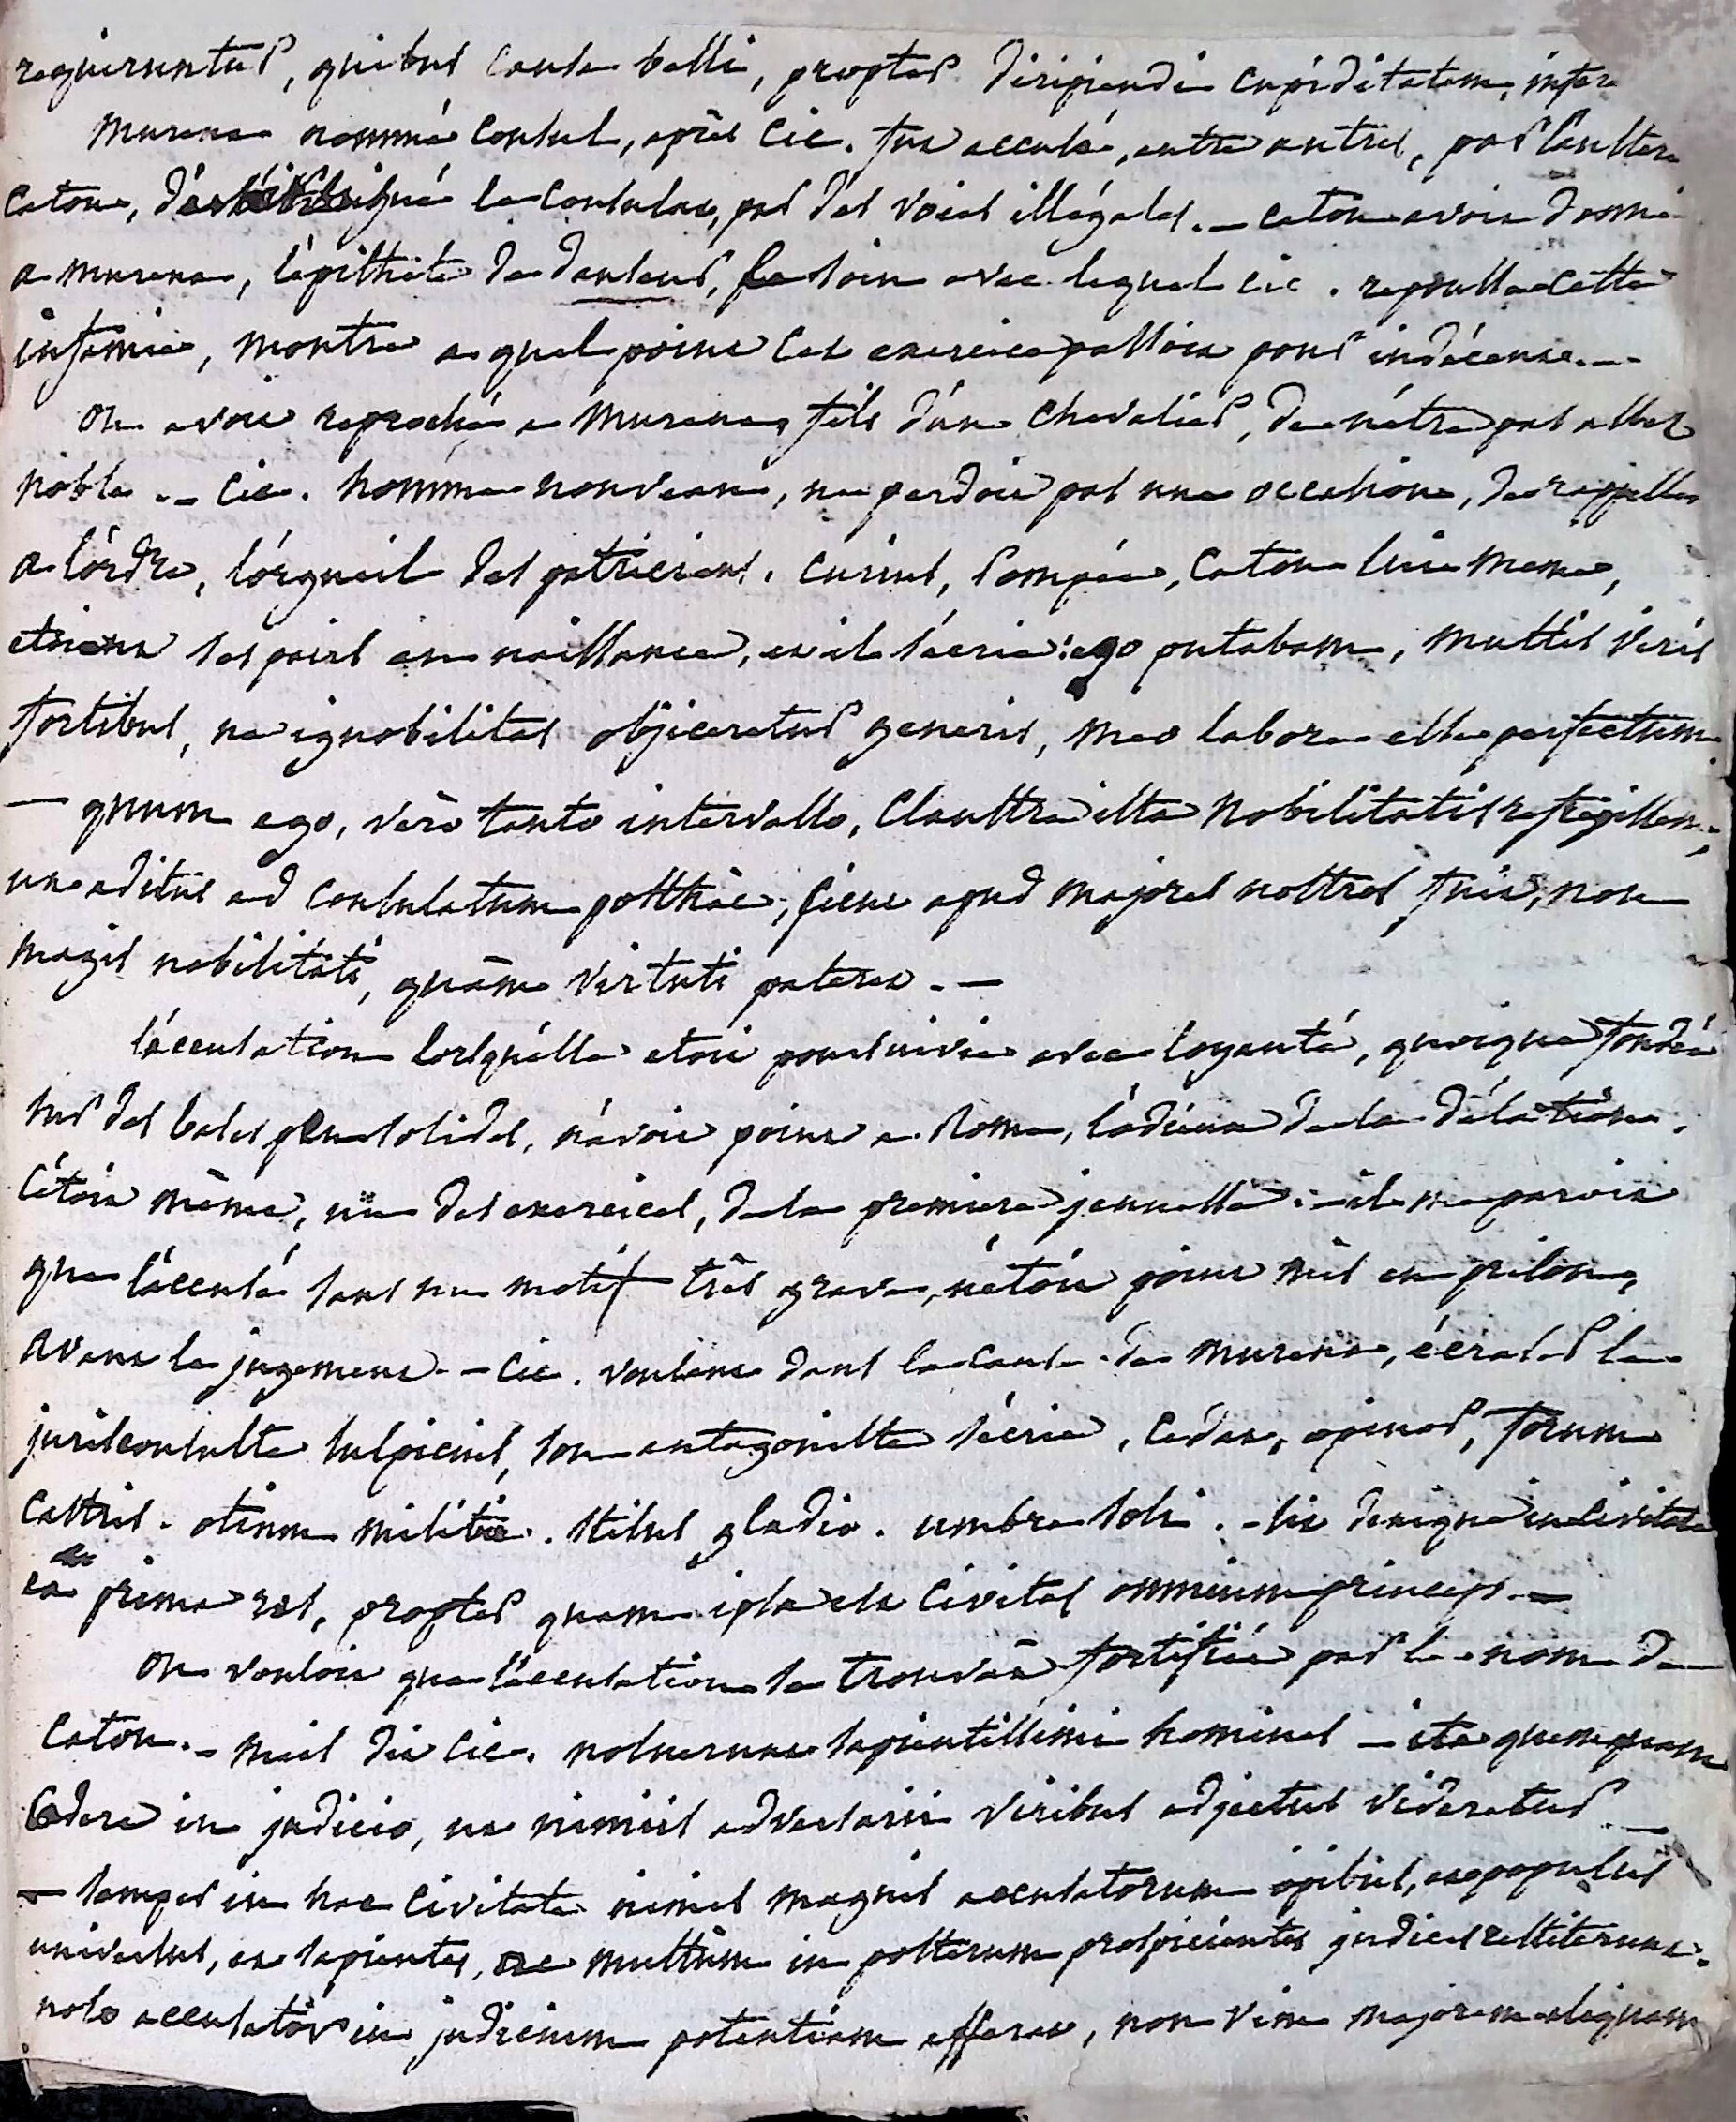 requiruntur, quibus causa belli, propter diripiendi cupiditatem, infera
Murena nommé consul, après Cic. fut accusé, entre autres, par l'austere
Caton, d'avoir brigué le consulat, par des voies illégales. — Caton avoit donné
a Murena, l'épithète de danseur, le soin avec lequel Cic. repoussa cette
infamie, montre a quel point cet exercice passoit pour indécent. —
On avoit reproché a Murena, fils d'un chevalier, de n'être pas assez
noble. — Cic. homme nouveau, ne perdoit pas une occasion, de rappeller
a l'ordre, l'orgueil des patriciens. Curius, Pompée, Caton lui meme,
etoient ses pairs en naissance, et il s'écrie: ego putabam, multis viris
fortibus, ne ignobilitas objiceretur generis, meo labore esse perfectum
— quum ego, vero tanto intervallo, claustra ista nobilitatis refregissem;
ut aditus ad consulatum posthàc, sicut apud majores nostros fuit, non
magis nobilitati, quàm virtuti pateret. —
l'accusation lorsqu'elle etoit poursuivie avec loyauté, quoique fondée
sur des bases peu solides, n'avoit point a Rome, l'odieux de la délation.
C'étoit même, un des exercices, de la premiere jeunesse. — il me paroit
que l'accusé sans un motif très grave, n'étoit point mis en prison,
avant le jugement. — Cic. voulant dans la cause de Murena, écraser le
jurisconsulte Sulpicius, son antagoniste s'écrie, cedat, opinor, forum
castris. otium militiæ. stilus gladio. umbra soli. — sit denique in civitate
ea prima res, propter quam ipsa est civitas omnium princeps. —
On vouloit que l'accusation se trouvât fortifiée par le nom de
Caton. — mais dit Cic. noluerunt sapientissimi homines — ita quemquam
cadere in judicio, ut nimiis adversarii viribus adjectus videretur. —
— semper in hac civitate nimis magnis accusatorum opibus, et populus
universus, et sapientes, ac multùm in posterum prospicientes judices restiterunt.
nolo accusator in judicium potentiam afferat, non vim majorem aliquam